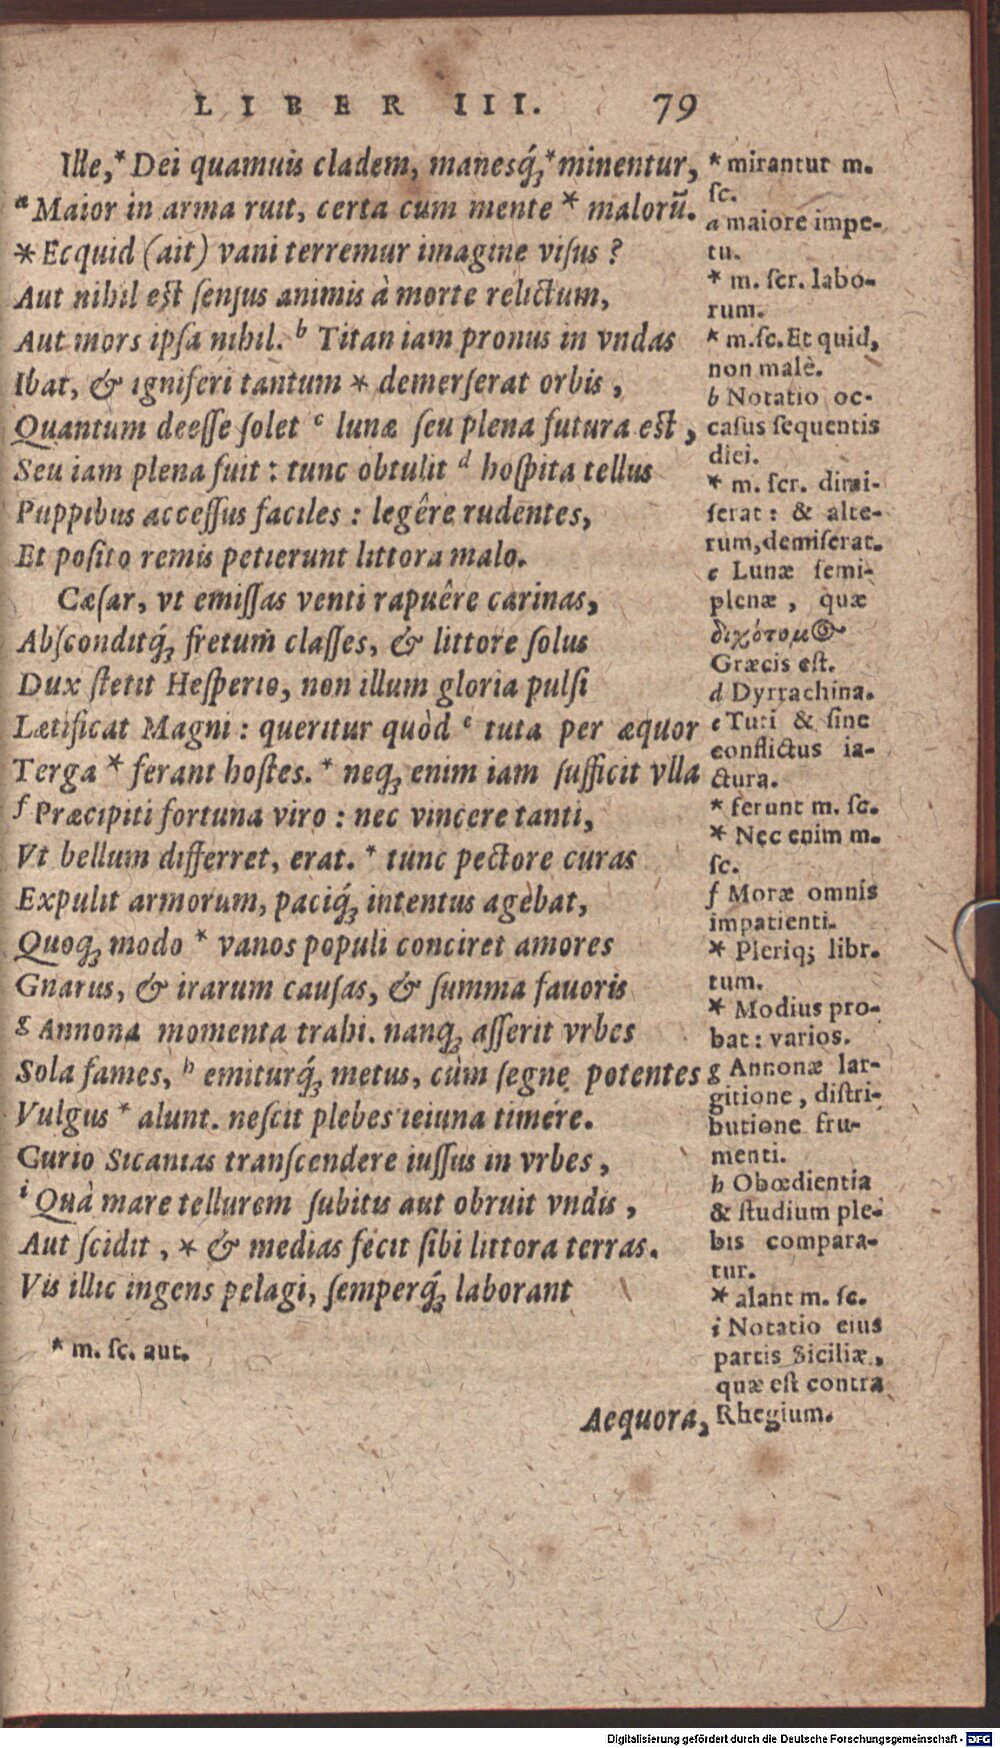 LIBER III. 79
Ille,* Dei quamuis cladem, manesq́ꝫ *minentur,
ᵃ Maior in arma ruit, certa cum mente * malorũ.
* Ecquid (ait) vani terremur imagine viſus ?
Aut nihil eſt ſenſus animis à morte relictum,
Aut mors ipſa nihil. ᵇ Titan iam pronus in vndas
Ibat, & igniferi tantum * demerſerat orbis,
Quantum deeſſe ſolet ᶜ lunæ ſeu plena futura eſt,
Seu iam plena fuit : tunc obtulit ᵈ hoſpita tellus
Puppibus acceſſus faciles : legêre rudentes,
Et poſito remis petierunt littora malo.
Cæſar, vt emiſſas venti rapuêre carinas,
Abſconditq́ꝫ fretum claſſes, & littore ſolus
Dux ſtetit Heſperio, non illum gloria pulſi
Lætificat Magni : queritur quòd ᵉ tuta per æquor
Terga * ferant hoſtes. * neqꝫ enim iam ſufficit vlla
ᶠ Præcipiti fortuna viro : nec vincere tanti,
Vt bellum differret, erat. * tunc pectore curas
Expulit armorum, paciq́ꝫ intentus agebat,
Quoqꝫ modo * vanos populi conciret amores
Gnarus, & irarum cauſas, & ſumma fauoris
ᵍ Annona momenta trahi. nanqꝫ aſſerit vrbes
Sola fames, ʰ emiturq́ꝫ metus, cùm ſegne potentes
Vulgus * alunt. neſcit plebes ieiuna timére.
Curio Sicanias tranſcendere iuſſus in vrbes,
ⁱ Quà mare tellurem ſubitis aut obruit vndis,
Aut ſcidit, * & medias fecit ſibi littora terras.
Vis illic ingens pelagi, ſemperq́ꝫ laborant
* m. ſc. aut.
Aequora,
* mirantur m.
ſc.
a maiore impe-
tu.
* m. ſcr. labo-
rum.
* m.ſc.Et quid,
non malè.
b Notatio oc-
caſus ſequentis
diei.
* m. ſcr. dimi-
ſerat : & alte-
rum,demiſerat.
c Lunæ ſemi-
plenæ, quæ
διχότομος
Græcis eſt.
d Dyrrachina.
e Tuti & ſine
conflictus ia-
ctura.
* ferunt m. ſc.
* Nec enim m.
ſc.
f Moræ omnis
impatienti.
* Pleriq; libr.
tum.
* Modius pro-
bat : varios.
g Annonæ lar-
gitione, diſtri-
butione fru-
menti.
h Obœdientia
& ſtudium ple-
bis compara-
tur.
* alant m. ſc.
i Notatio eius
partis Siciliæ,
quæ eſt contra
Rhegium.
Digitalisierung gefördert durch die Deutsche Forschungsgemeinschaft - DFG